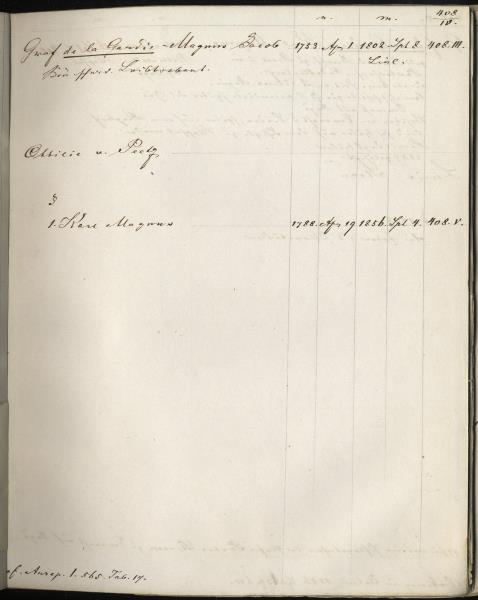 n. m. 408
IV.
Graf de la Gardie - Magnus Jacob 1753 Apr 1 1802 Spt 8. 408. III.
Kön schwed. Leibtrabant. Linc.
Ottilie v. Peetz
§
1. Karl Magnus 1788 Apr 19 1856. Spt 4. 408. V.
cf. Anrep. 1. 565. Tab. 17.